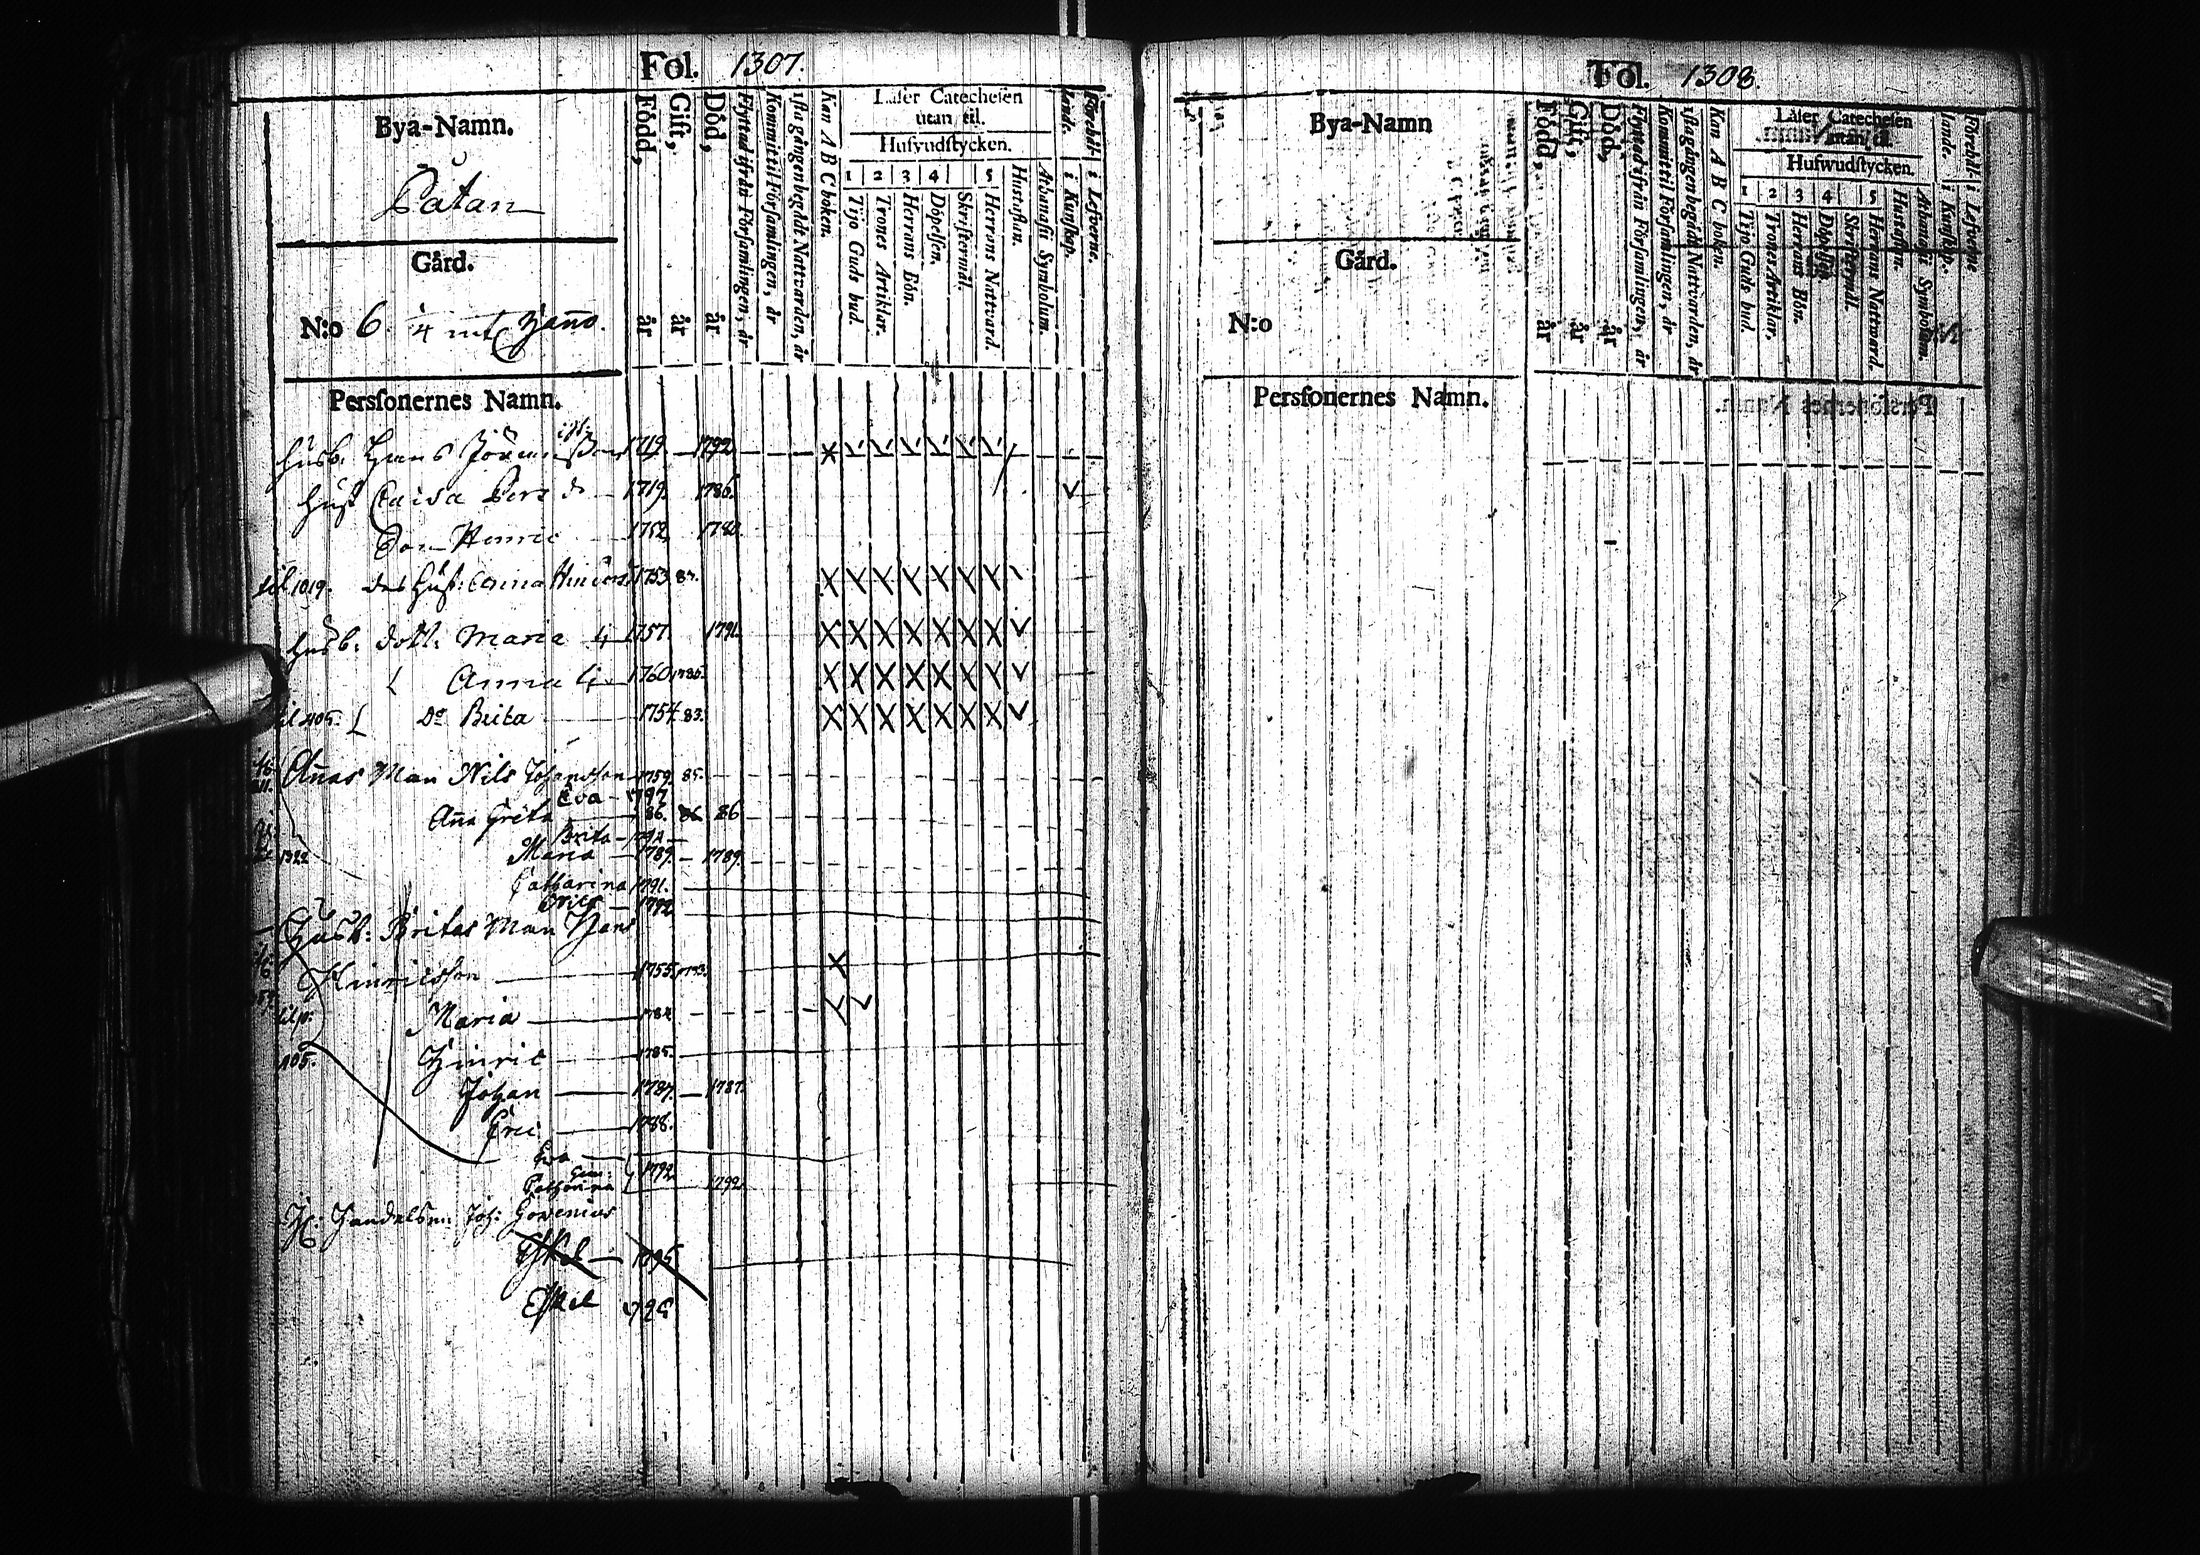 Fol. 1307.
Bya-Namn.
Påtan
Gård.
N:o 6. 1/4 mtl
Personernes Namn.
Född, år
Gift, år
Död, år
Flyttad ifrån Församlingen, år
Kommit til Församlingen, år
1sta gången begådt Nattvarden, år
Kan A B C boken.
Läser Catechesen
utan til.
Husvudstycken.
1 2 3 4 5
Tijo Guds bud.
Trones Artiklar.
Herrans Bön.
Döpelsen.
Skriftermål.
Herrens Nattvard.
Hustaflan.
Athanasii Symbolum.
Förehållande.
i Kunskap.
i Lefverne.
Husb. Hans 1719 1792
Hust Caisa Pers d 1719 1786
Son Henric 1752 1780
til 1019. des Hust: Anna 1753 84.
Husb: dott: Maria 1757 1791
Anna 1760 1785
til 405. Do Brita 1754 83.
Annas Man Nils Johansson 1759 85.
Eva 1797
Anna Greta 86. 86
Brita
1322 Maria 1789 1789.
Catharina 1791.
1792
Hust: Britas Man Hans
Hinricsson 1755
Maria
Hinric 1785.
405. Johan 1787 1787
Eric 1788.
Eva
Catharina 1792 1792
H: Handelsm: Joh:
Eskel 1795
Eskel 1795
Fol. 1308.
Bya-Namn
Gård.
N:o
Personernes Namn.
Född, år
Gift, år
Död, år
Flyttad ifrån Församlingen, år
Kommit til Församlingen, år
1sta gången begådt Nattvarden, år
Kan A B C boken.
Läser Catechesen
utan til.
Hufwudstycken.
1 2 3 4 5
Tijo Guds bud.
Trones Artiklar.
Herrans Bön.
Döpelsen.
Skriftermål.
Herrans Nattvard.
Hustaflan.
Athanasii Symbolum.
Förehållande.
i Kunskap.
i Lefverne